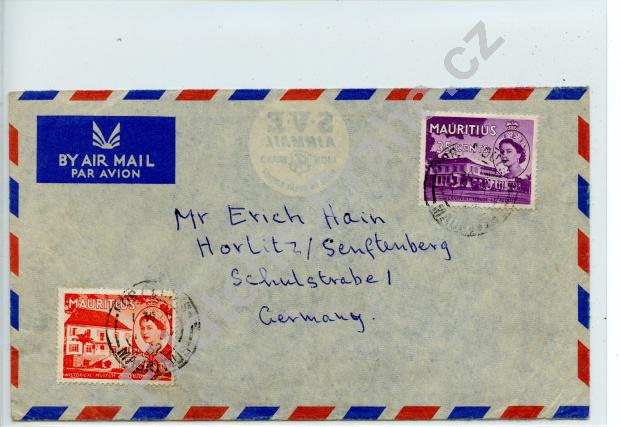 MAURITIUS
35 CENTS
BY AIR MAIL
PAR AVION
SVE
AIRMAIL
Mr Erich Hain
Horlitz/Senftenberg
Schulstrabe 1
Germany.
MAURITIUS
HISTORICAL MUSEUM